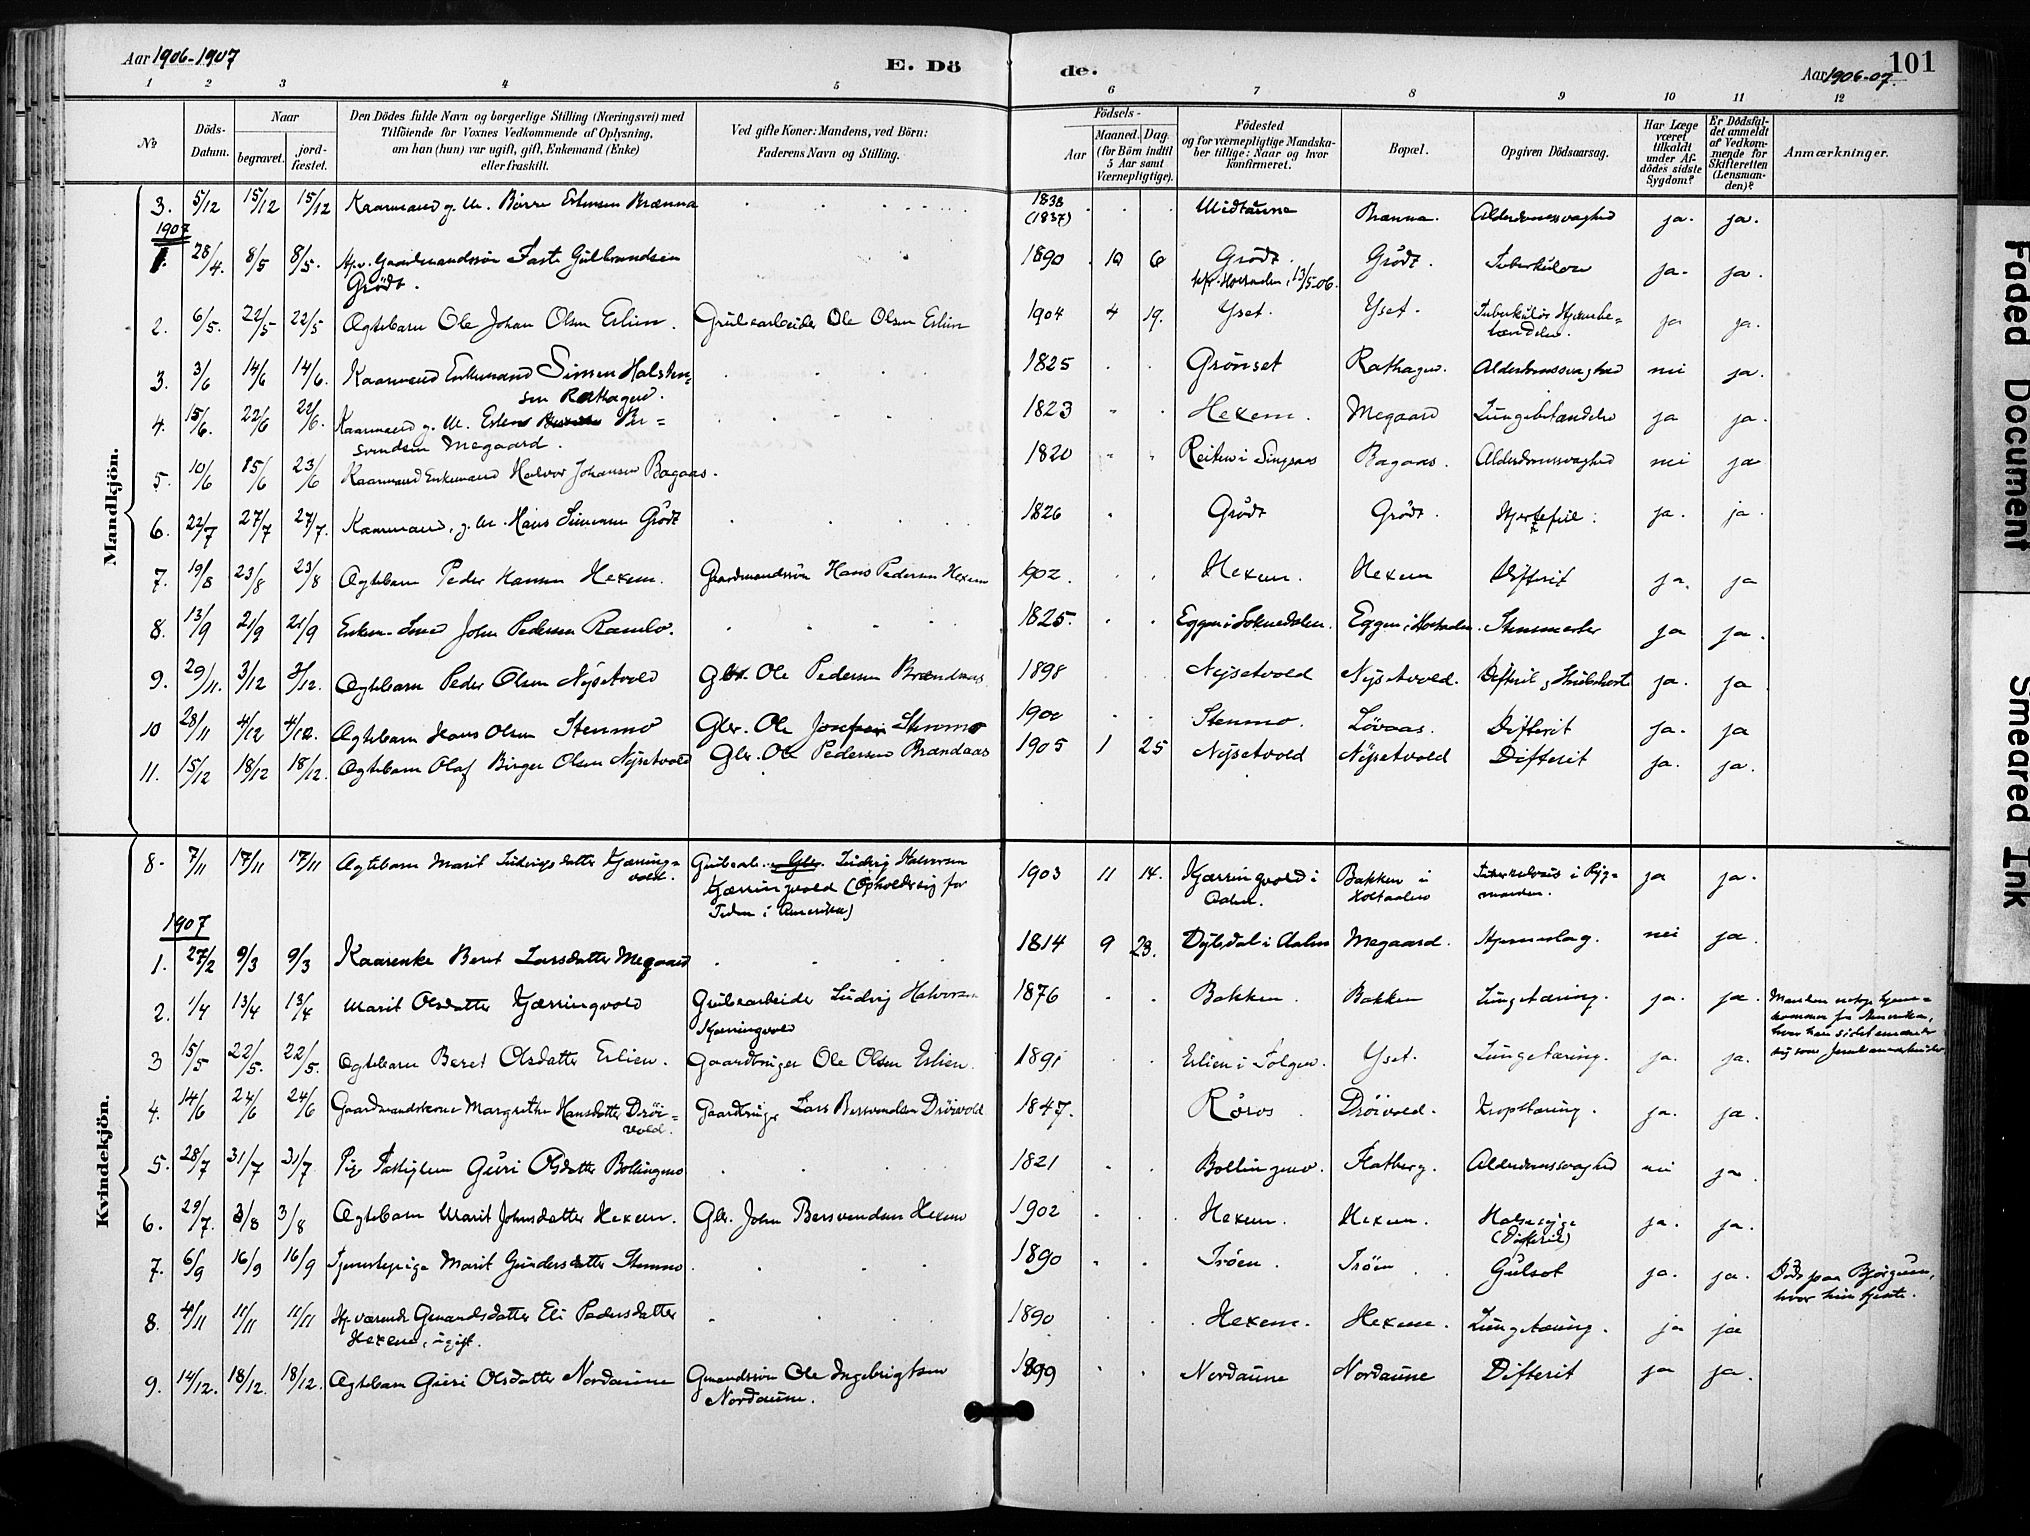 Aar 1906-1907
E. Dö
de.
Aar 1906-07.
101
1 2 3 4 5 6 7 8 9 10 11 12
No
Döds-Datum.
Naar
begravet.
jord-fæstet.
Den Dödes fulde Navn og borgerlige Stilling (Næringsvei) med
Tilföiende for Voxnes Vedkommende af Oplysning,
om han (hun) var ugift, gift, Enkemand (Enke)
eller fraskilt.
Ved gifte Koner: Mandens, ved Börn:
Faderens Navn og Stilling.
Födsels-
Aar
Maaned. Dag
(for Börn indtil
5 Aar samt
Værnepligtige).
Födested
og for værnepligtige Mandska-
ber tillige: Naar og hvor
konfirmeret.
Bopæl.
Opgiven Dödsaarsag.
Har Læge
været
tilkaldt
under Af-
dödes sidste
Sygdom?
Er Dödsfal-
det anmeldt
af Vedkom-
mende for
Skifteretten
(Lensman-
den)?
Anmærkninger.
Mandkjön.
3. 5/12 15/12 15/12 Kaarmand g. M. Börre Erlensen Brænna 1838 (1837) Midtaune Brænna. Alderdomssvaghed ja. ja.
1907
1. 28/4. 8/5 8/5. Gaardmandssön Fast Gulbrandsen
Grödt. 1890 10 6 Grödt. Grödt. Tuberkulose ja. ja.
13/5-06.
2. 6/5. 22/5 22/5 Ægtebarn Ole Johan Olsen Erlien. Grubearbeider Ole Olsen Erlien 1904 4 19. Yset. Yset. Tuberkulös Hjernebe=
tændelse. ja ja.
3. 3/6 14/6 14/6. Kaarmand Enkemand Simen Halsten=
sen Rathagen. 1825 Grönset Rathagen. Alderdomssvaghed nei ja.
4. 15/6. 22/6 22/6. Kaarmand g. M. Erlend Ber=
svendsen Megaard. 1823 Hexem. Megaard Lungebetændelse ja ja.
5. 10/6 15/6 23/6 Kaarmand Enkemand Halvor Johansen Bagaas. 1820 Reiten i Singsaas Bagaas. Alderdomssvaghed nei ja
6. 22/7 27/7 27/7. Kaarmand, g. M. Hans Simensen Grödt 1826 Grödt Grödt. Hjertefeil. ja. ja.
7. 19/8 23/8 23/8 Ægtebarn Peder Hansen Hexem. Gaardmandssön Hans Pedersen Hexem 1902. Hexem. Hexem Difterit ja. ja
8. 13/9 21/9 21/9 John Pedersen Ramlo. 1825. Eggen i Soknedalen. Eggen i Holtaalen. ja ja.
9. 29/11. 3/12 3/12. Ægtebarn Peder Olsen Nysetvold Gbr. Ole Pedersen Brændaas 1898 Nysetvold Nysetvold. Difterit & Strubehoste ja. ja
10 28/11 4/12 4/12. Ægtebarn Hans Olsen Stenmo Gbr. Ole Josefsen Stenmo 1900 Stenmo. Lövaas. Difterit ja. ja
11. 15/12 18/12 18/12. Ægtebarn Olaf Birger Olsen Nysetvold Gbr. Ole Pedersen Brændaas 1905 1 25 Nysetvold Nysetvold Difterit ja. ja.
Kvindekjön.
8. 7/11 17/11 17/11 Ægtebarn Marit Ludvigsdatter Kjæring=
vold. Grubearb. Gbr. Ludvig Halvorsen
Kjærringvold (Opholder sig for
Tiden i Amerika) 1903 11 14. Kjærringvold i
Aalen. Bakken i
Holtaalen Tuberkulose i Ryg=
marven. ja ja.
1907
1. 27/2 9/3 9/3 Kaarenke Beret Larsdatter Megaard 1814 9 23. Dybdal i Aalen Megaard. Hjerneslag. nei ja.
2. 1/4 13/4 13/4 Marit Olsdatter Kjærringvold Grubearbeider Ludvig Halvorsen
Kjærringvold 1876 Bakken. Bakken Lungetæring. ja. ja.
Manden netop hjem=
kommen fra Amerika,
hvor han sidst ernærte
sig som Jernbanearbeider
3 15/5 22/5. 22/5. Ægtebarn Beret Olsdatter Erlien. Gaardbruger Ole Olsen Erlien. 1891 Erlien i Tolgen. Yset. Lungetæring. ja. ja.
4. 14/6 24/6 24/6 Gaardmandskone Margrethe Hansdatter Dröi=
vold. Gaardbruger Lars Bersvendsen Dröivold 1847. Röros. Dröivold. Kroptæring. ja. ja
5. 28/7 31/7 31/7 Pige Fattiglem Guri Olsdatter Bollingmo 1821 Bollingmo. Flatberg. Alderdomssvaghed nei ja.
6. 29/7. 3/8 3/8 Ægtebarn Marit Johnsdatter Hexem. Gbr. John Bersvendsen Hexem 1902 Hexem. Hexem. Halssyge
(Difterit) ja. ja.
7. 6/9 16/9 16/9 Tjenestepige Marit Gundersdatter Stenmo 1890 Tröen. Tröen Gulsot ja. ja.
Död paa Bjørguen,
hvor hun tjente.
8. 4/11 11/11 11/11 Hjv værende Gmandsdatter Eli Pedersdatter
Hexem, ugift. 1890 Hexem. Hexem. Lungetæring. ja ja
9. 14/12. 18/12. 18/12. Ægtebarn Guri Olsdatter Nordaune Gmandssön Ole Ingebrigtsen
Nordaune. 1899 Nordaune Nordaune Difterit ja ja.
Faded Document
Smeared Ink